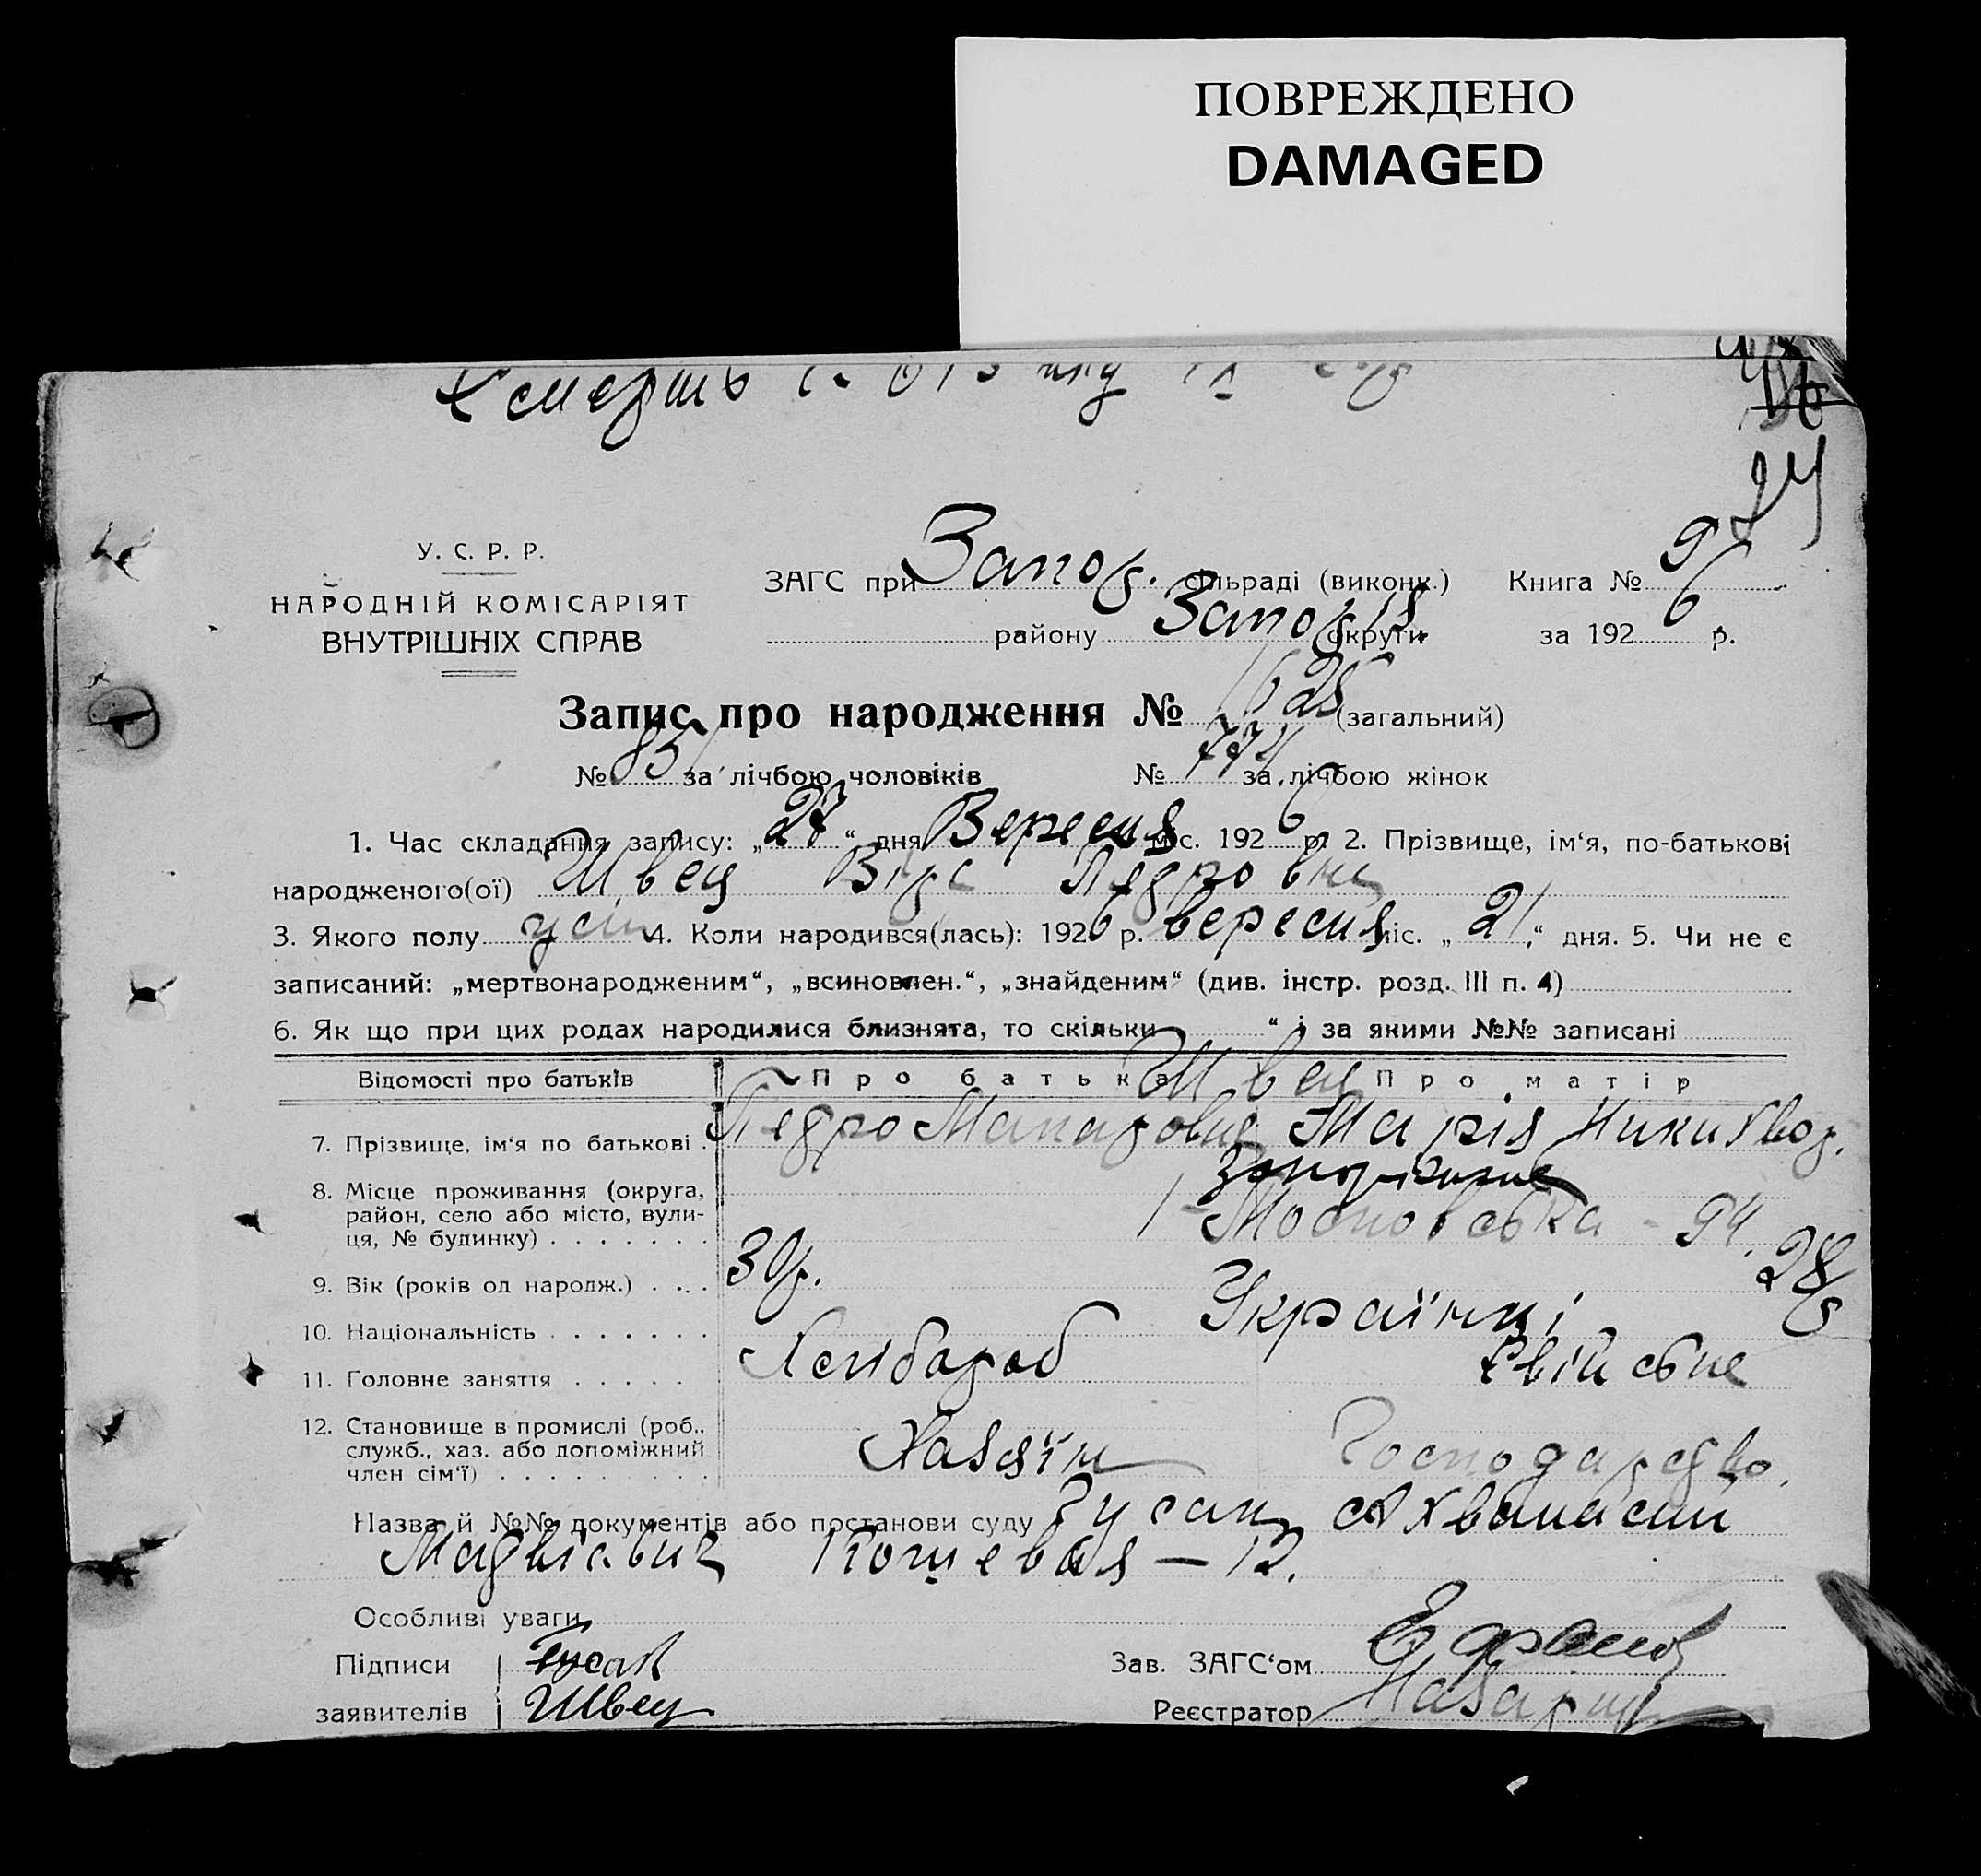 ПОВРЕЖДЕНО
DAMAGED
смерть
24
У. С. Р. Р.
НАРОДНІЙ КОМІСАРІЯТ
ВНУТРІШНІХ СПРАВ
ЗАГС при Запор. сільраді (виконк.) Книга № 9
району Запоріз. округи за 1926 р.
Запис про народження № 1625 (загальний)
№ 851 за лічбою чоловіків № 774 за лічбою жінок
1. Час складання запису: „27“ дня Вересня міс. 1926 р. 2. Прізвище, ім‘я, по-батькові
народженого(ої) Швец Віра Педровна
3. Якого полу 4. Коли народився(лась): 1926 р. вересня міс. „21“ дня. 5. Чи не є
записаний: „мертвонародженим“, „всиновлен.“, „знайденим“ (див. інстр. розд. III п. 4)
6. Як що при цих родах народилися близнята, то скільки “ і за якими №№ записані
Відомості про батьків Про батька Про матір
Швец
7. Прізвище, ім‘я по батькові Педро Макарович Марія Никихвор.
8. Місце проживання (округа, район, село або місто, вулиця, № будинку)
Московська - 94.
9. Вік (років од народж.) 30р. 28р
10. Національність Українці
11. Головне заняття Хлібороб Хвійське
12. Становище в промислі (роб., служб., хаз. або допоміжний член сім‘ї) Хазяїн Господарство.
Назва й №№ документів або постанови суду Гусак Ахванасий
Мадвієвич Кошевая — 12.
Особливі уваги
Підписи Гусак Зав. ЗАГС‘ом
заявителів Швец Реєстратор